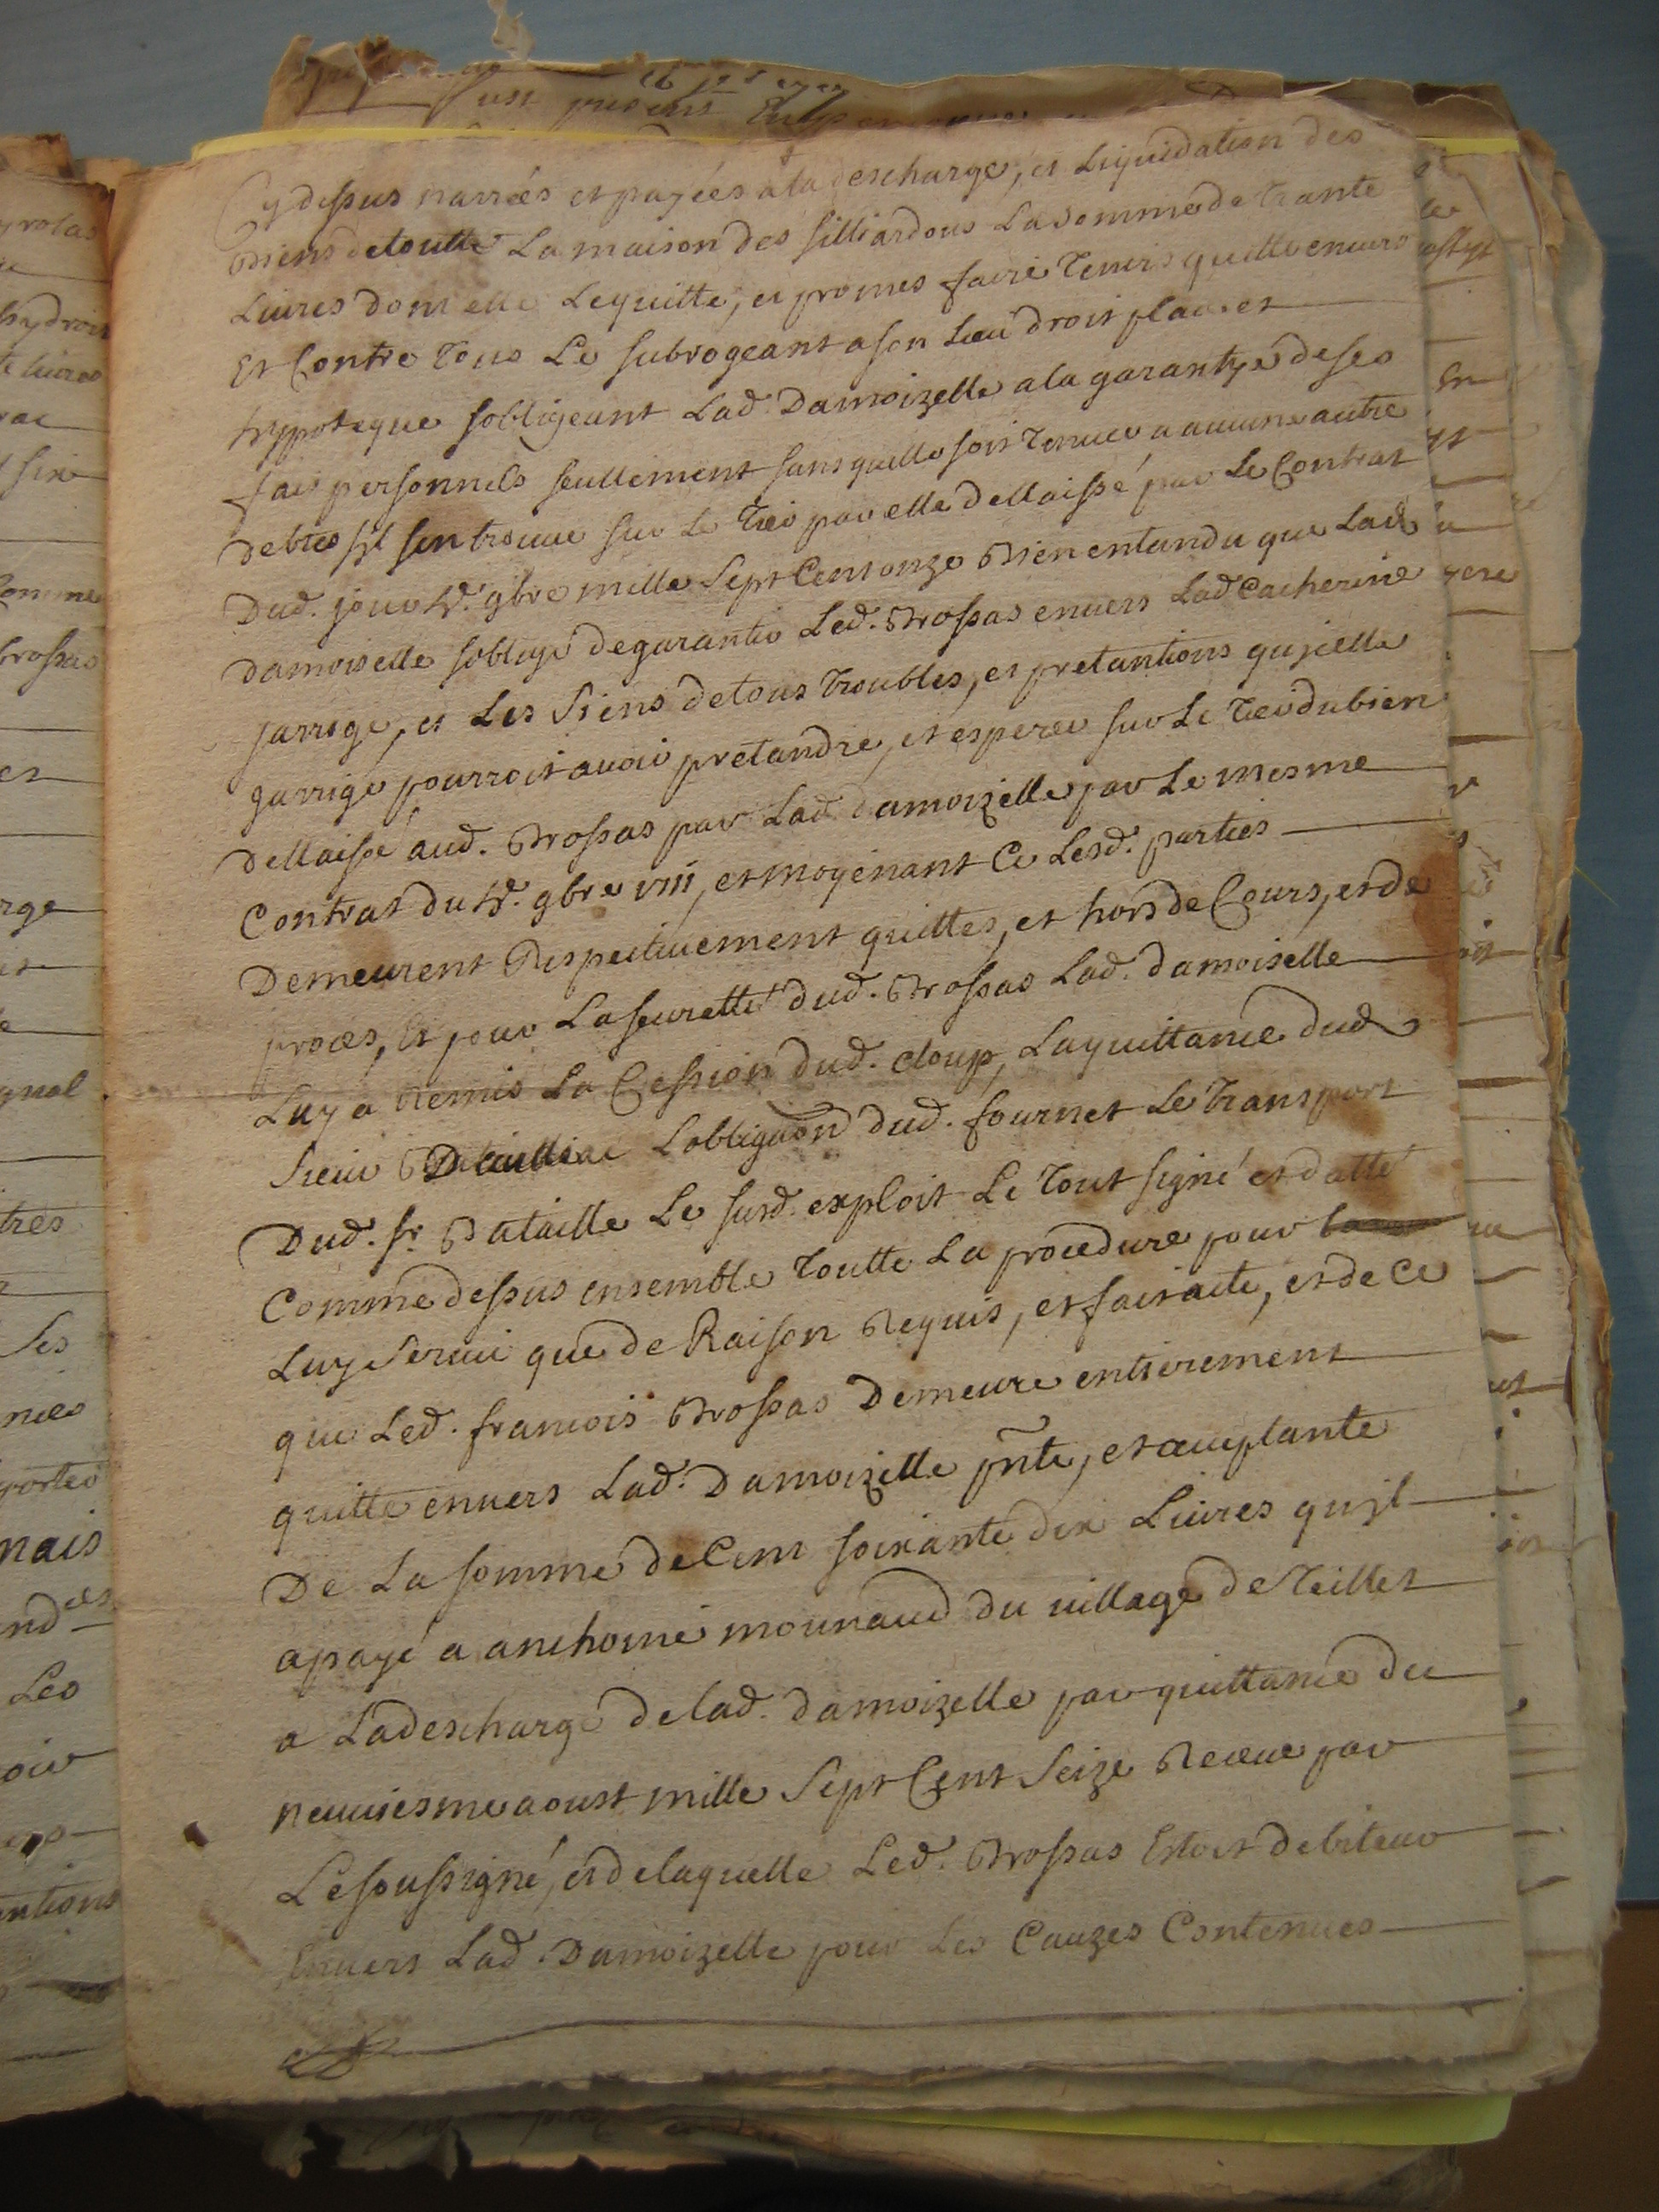 Cy dessus narrées et payées a la descharge, et Liquidation des
biens de toutte La maison des filliardous La somme de trante
Livres dont elle Le quitte, et promes faire tenir quitte envers
Et Contre tous Le subrogeant a son Lieu droit place et
hypoteque s'obligeant Lad. Damoizelle a la garantye de ses
fais personnels seullement sans quelle soit tenue a aucune autre
debtes sil sen trouve sur Le tier par elle dellaissé par Le Contrat
Dud. jour 9bre mille Sept Cent onze Bien entandu que Lad.
Damoiselle soblige de garantir Led. Brossas envers Lad. Catherine
jarrige, et Les Siens de tous troubles, et pretantions qu'jcelle
jarrige pourroit avoir pretandre, et esperer sur Le tier du bien
dellaissé aud. Brossas par Lad. damoizelle par Le mesme
Contrat du 9bre viii, et moyénant Ce Lesd. parties
Demeurent Respectivement quittes, et hors de Cours, et de
proces, Et pour La seuretté dud. Brossas Lad. damoiselle
Luy a Remis La Cession dud. cloup, La quittance dud.
sieur Lobligaõn dud. fournet Le transport
Dud. sr. Bataille Le susd. exploit Le tout signé et datté
Comme dessus ensemble toutte La procedure pour
Luy Servir que de Raison Requis, et fait acte, et de Ce
que Led. francois Brossas Demeure entierement
quitte envers Lad. Damoizelle pnte, et acceptante
De La somme de Cent soixante dix Livres qu'jl
a payé a anthoine mounaud du village de teillet
a La descharge de lad. damoizelle par quittance du
neuviesme aoust mille Sept Cent Seize Receue par
Le soussigné, et de laquelle Led. Brossas Estoit debiteur
Envers Lad. Damoizelle pour Les Cauzes Contenues